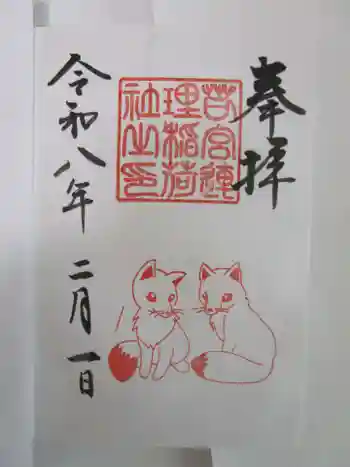 奉拝
若宮運
理稲荷
社之印
令和八年 二月一日